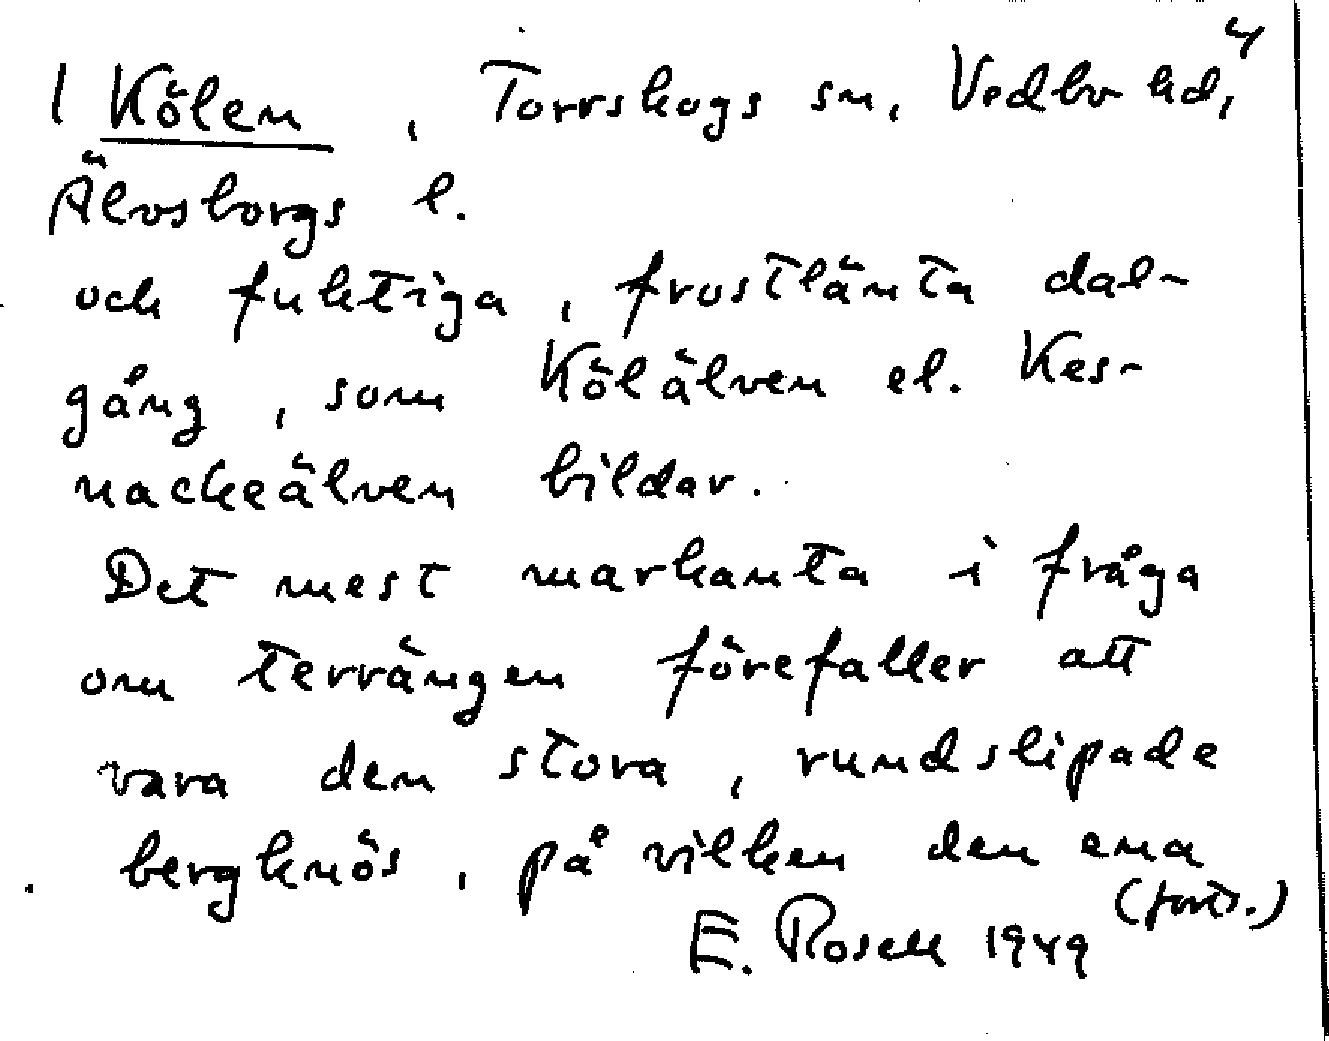 4
1 Kölen , Torrskogs sn, Vedbo hd,
Älvsborgs l.
och fuktiga, frostlänta dal-
gång, som Kölälven el. Kes-
nackeälven bildar.
Det mest markanta i fråga
om terrängen förefaller att
vara den stora, rundslipade
bergknös, på vilken den ena
(forts.)
E. Rosell 1949